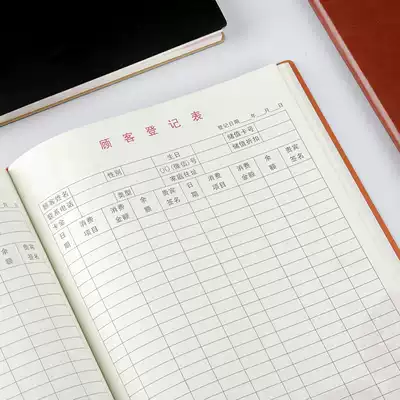 顾客登记表
登记日期 年 月 日
顾客姓名 性别 生日 储值卡号
联系电话 QQ(微信)号 储值折扣
卡金 类型 家庭住址
日期 消费项目 消费金额 余额 贵宾签名 日期 消费项目 消费金额 余额 贵宾签名
余额 贵宾签名